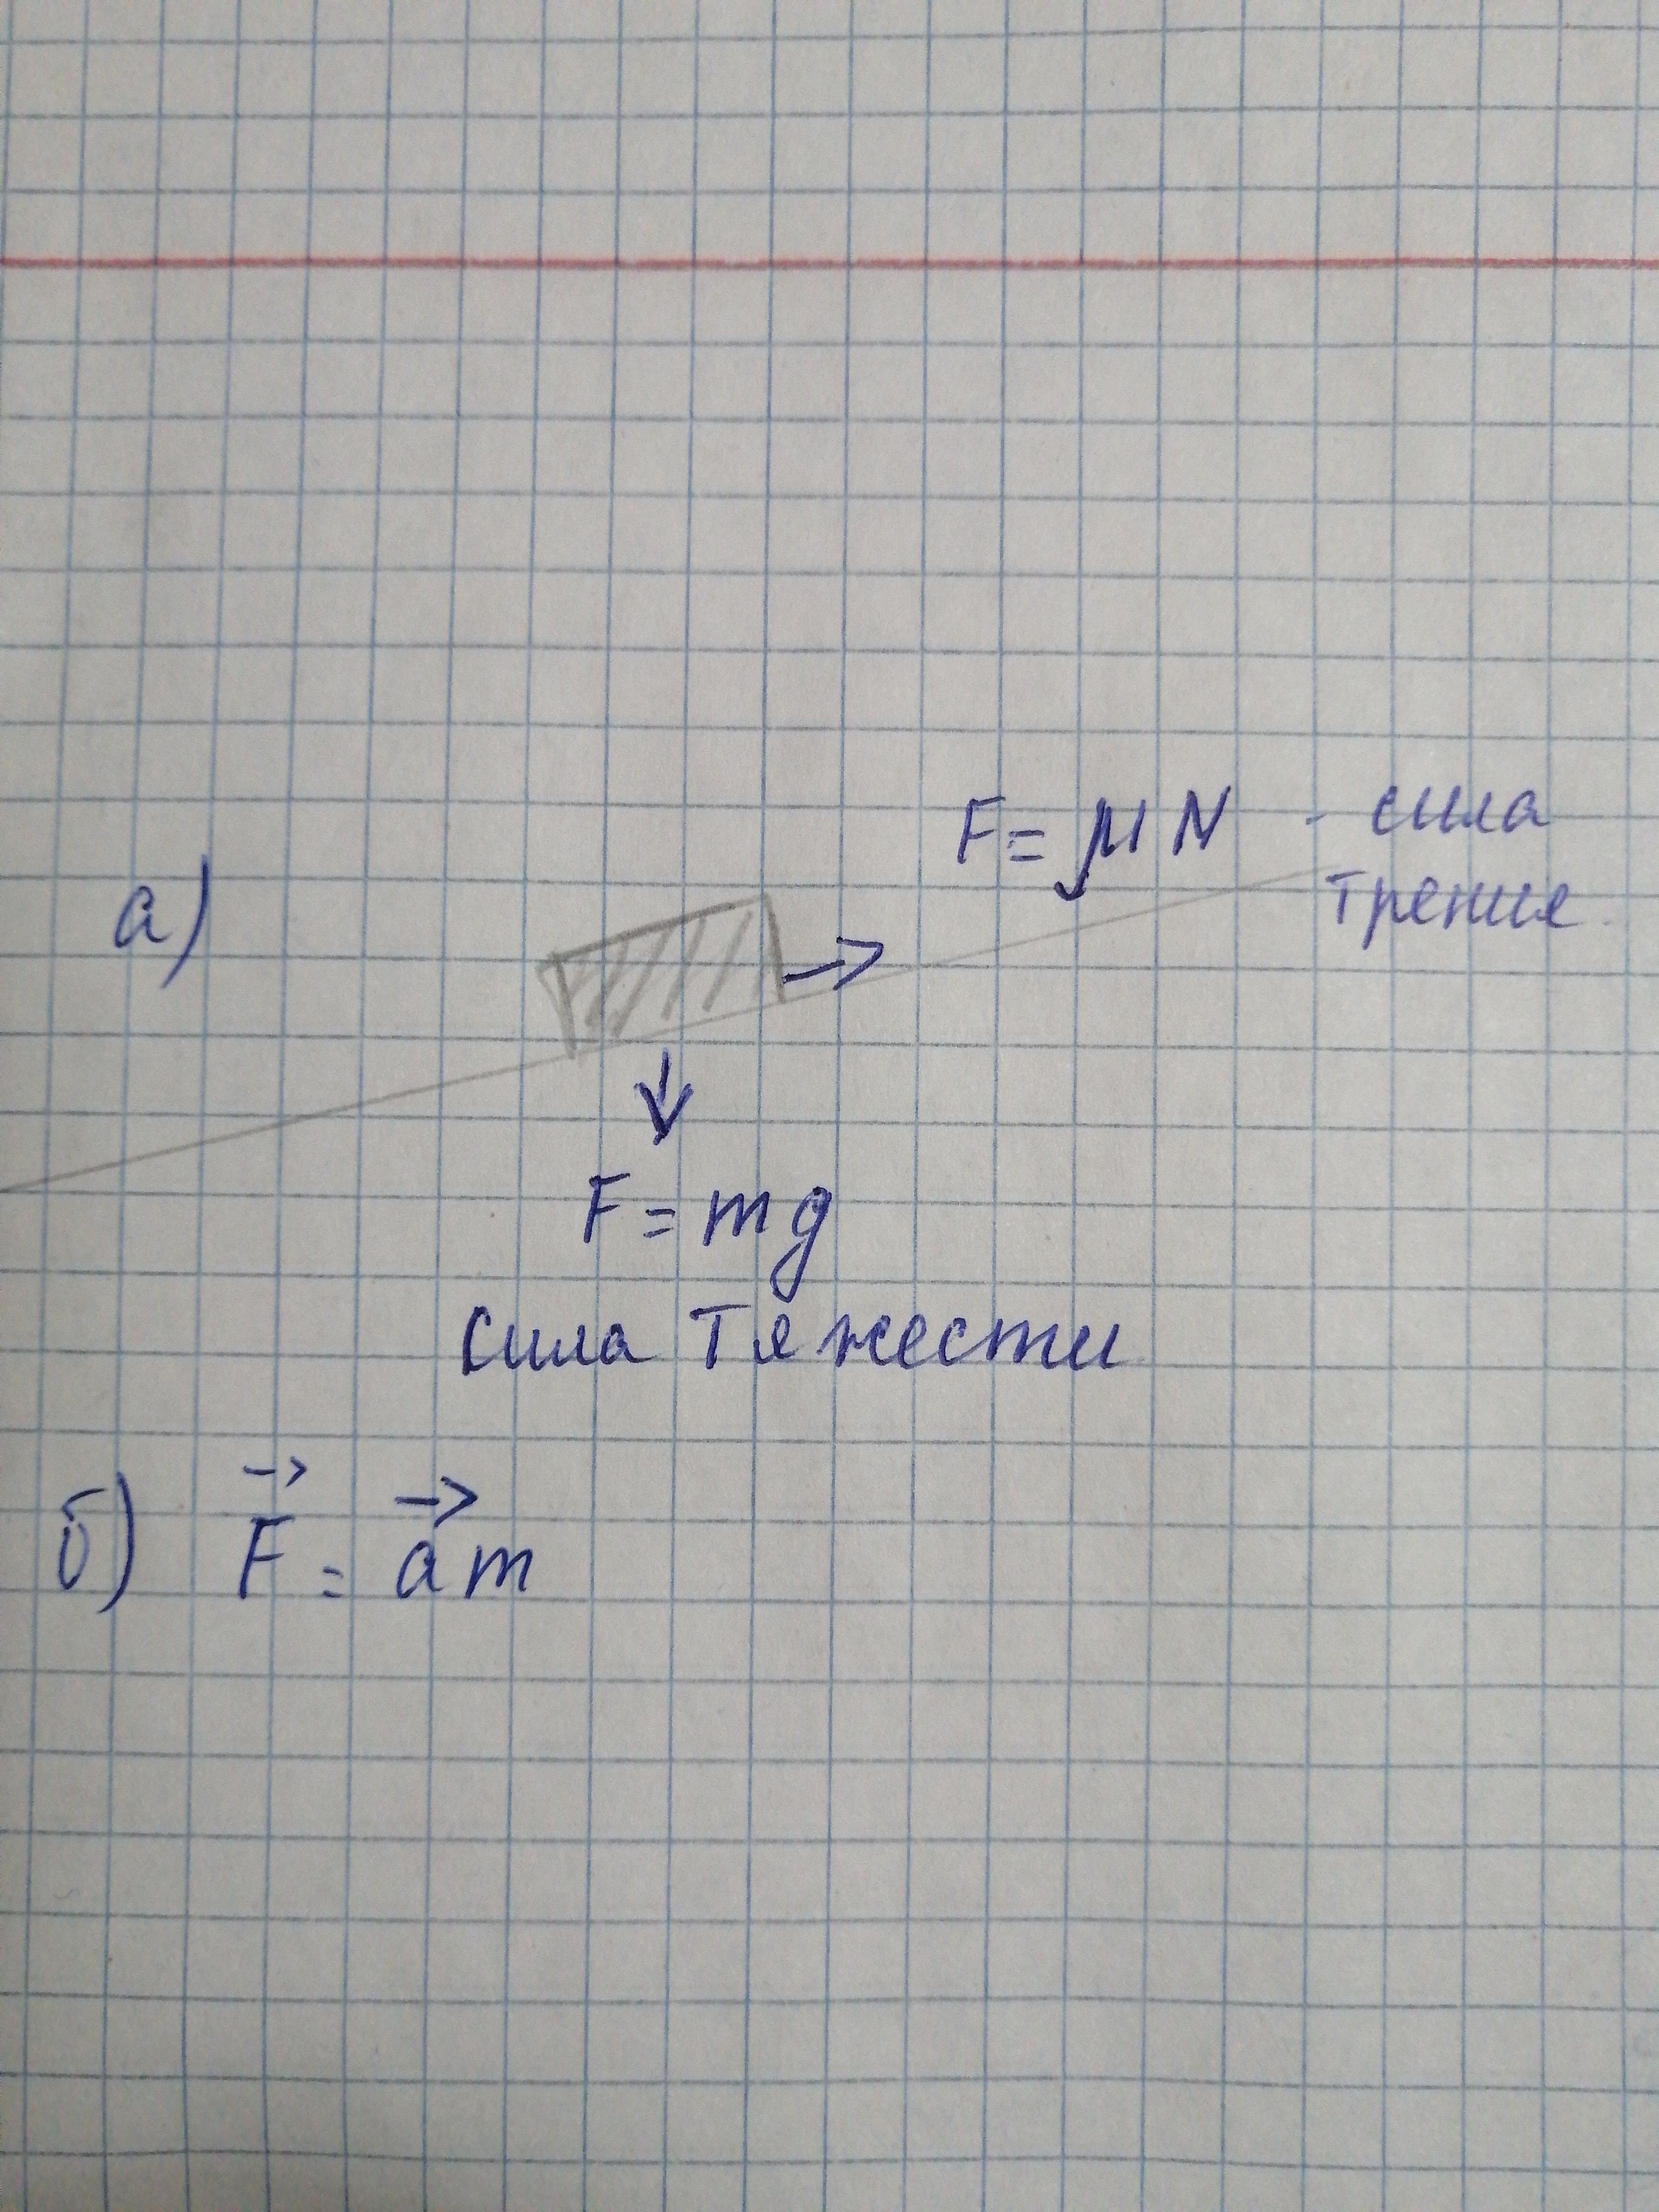 F = μN - сила
трение
а)
F = mg
сила тяжести
б) F⃗ = a⃗m